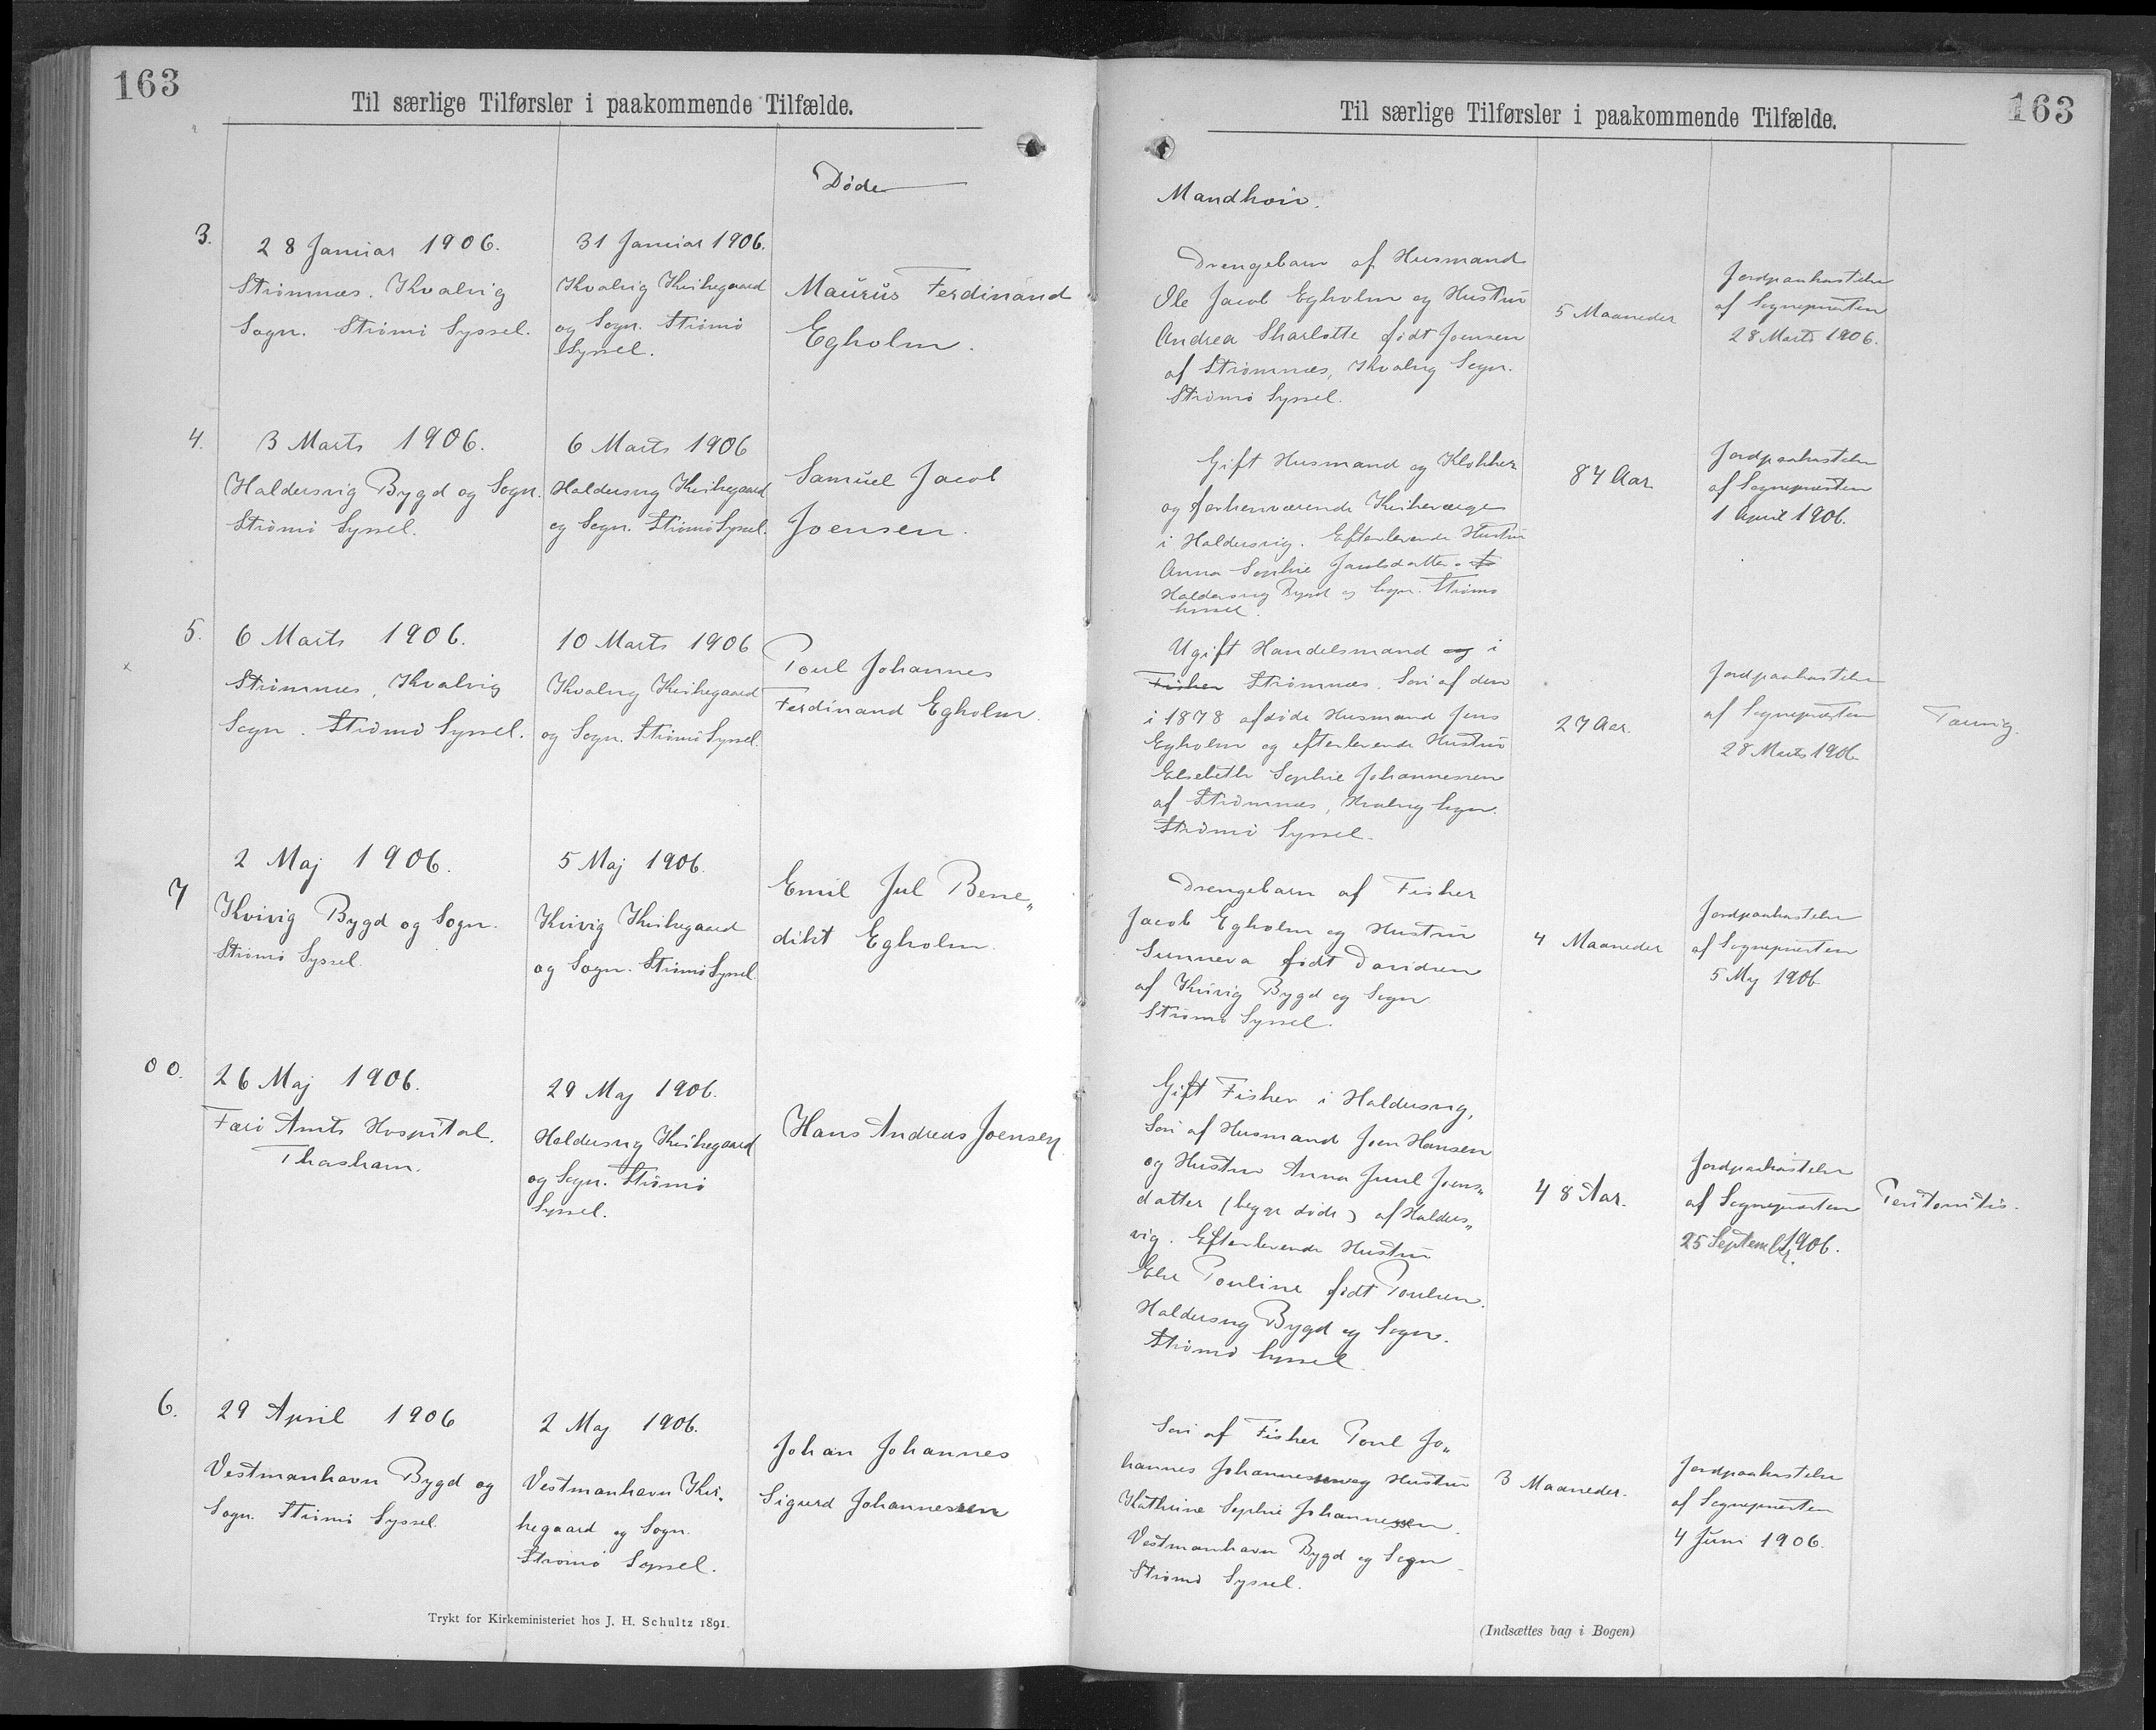 163
Til særlige Tilførsler i paakommende Tilfælde.
Til særlige Tilførsler i paakommende Tilfælde.
163
Døde
Mandkøn.
3.
28 Januar 1906.
Strømnæs. Kvalvig
Sogn. Strømø Syssel.
31 Januar 1906.
Kvalvig Kirkegaard
og Sogn. Strømø
Syssel.
Maurus Ferdinand
Egholm.
Drengebarn af Husmand
Ole Jacob Egholm og Hustru
Andrea Sharlotte født Joensen
af Strømnæs, Kvalvig Sogn.
Strømø Syssel.
5 Maaneder
Jordpaakastelse
af Sognepræsten
28 Marts 1906.
4.
3 Marts 1906.
Haldersvig Bygd og Sogn.
Strømø Syssel.
6 Marts 1906
Haldersvig Kirkegaard
og Sogn. Strømø Syssel.
Samuel Jacob
Joensen.
Gift Husmand og Klokker
og forhenværende Kirkeværge
i Haldersvig. Efterlevende Hustru
Anna Sophie Jacobsdatter.
Haldersvig Bygd og Sogn. Strømø
Syssel.
84 Aar
Jordpaakastelse
af Sognepræsten
1 April 1906.
5.
6 Marts 1906.
Strømnæs, Kvalvig
Sogn. Strømø Syssel.
10 Marts 1906
Kvalvig Kirkegaard
og Sogn. Strømø Syssel.
Poul Johannes
Ferdinand Egholm.
Ugift Handelsmand og i
Fisker Strømnæs. Søn af den
i 1878 afdøde Husmand Jens
Egholm og efterlevende Hustru
Elsebeth Sophie Johannessen
af Strømnæs, Kvalvig Sogn.
Strømø Syssel.
27 Aar.
Jordpaakastelse
af Sognepræsten
28 Marts 1906
7
2 Maj 1906.
Kvivig Bygd og Sogn.
Strømø Syssel.
5 Maj 1906.
Kvivig Kirkegaard
og Sogn. Strømø Syssel
Emil Jul Bene„
dikt Egholm.
Drengebarn af Fisker
Jacob Egholm og Hustru
Sunneva født Davidsen
af Kvivig Bygd og Sogn
Strømø Syssel.
4 Maaneder
Jordpaakastelse
af Sognepræsten
5 Maj 1906
00.
26 Maj 1906.
Færø Amts Hospital.
Thorshavn.
29 Maj 1906.
Haldersvig Kirkegaard
og Sogn. Strømø
Syssel.
Hans Andreas Joensen
Gift Fisker i Haldersvig,
Søn af Husmand Joen Hansen
og Hustru Anna Juul Joens„
datter (begge døde) af Halders„
vig. Efterlevende Hustru
Else Pouline født Poulsen.
Haldersvig Bygd og Sogn.
Strømø Syssel.
48 Aar.
Jordpaakastelse
af Sognepræsten
25 September 1906.
Peritonitis.
6.
29 April 1906
Vestmanhavn Bygd og
Sogn. Strømø Syssel.
2 Maj 1906.
Vestmanhavn Kir„
kegaard og Sogn.
Strømø Syssel.
Johan Johannes
Sigurd Johannessen
Søn af Fisker Poul Jo„
hannes Johannessen og Hustru
Kathrine Sophie Johannessen.
Vestmanhavn Bygd og Sogn
Strømø Syssel.
3 Maaneder.
Jordpaakastelse
af Sognepræsten
4 Juni 1906.
Trykt for Kirkeministeriet hos J. H. Schultz 1891.
(Indsættes bag i Bogen)